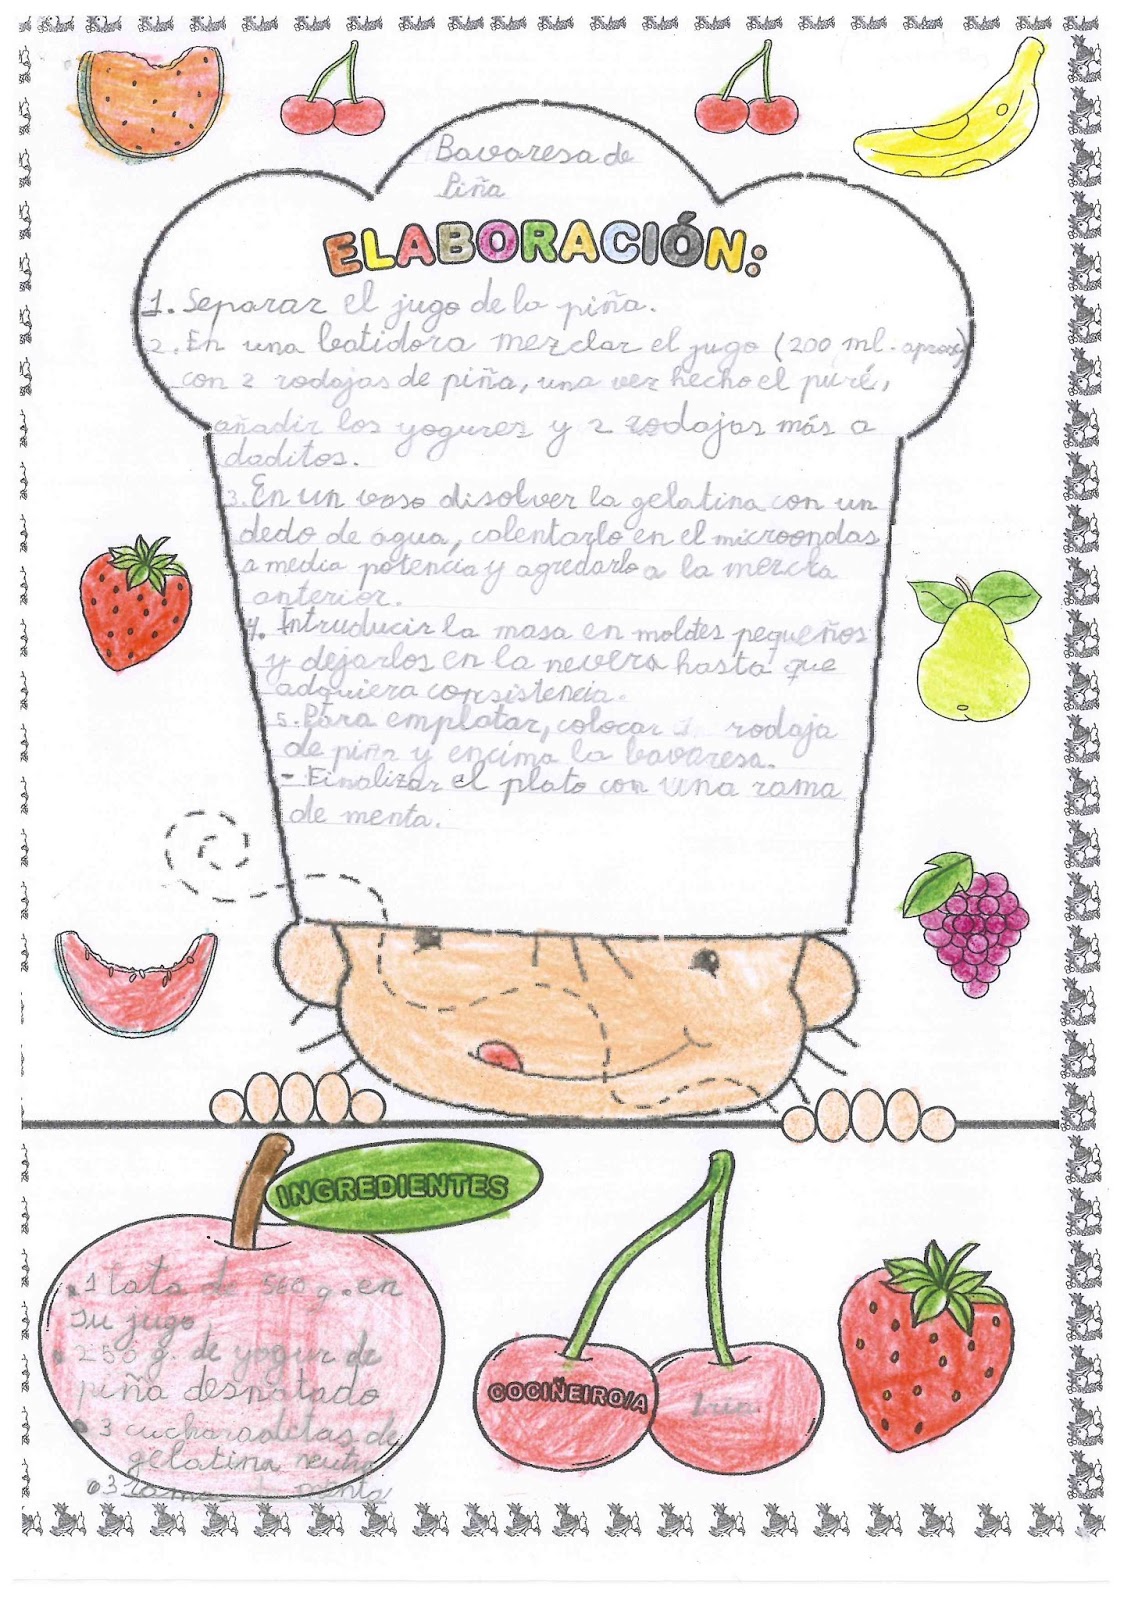 Bavaresa de
Piña
ELABORACIÓN:
1. Separar el jugo de la piña.
2. En una batidora mezclar el jugo (200 ml. aprox)
con 2 rodajas de piña, una vez hecho el puré,
añadir los yogures y 2 rodajas más a
daditos.
3. En un vaso disolver la gelatina con un
dedo de agua, calentarlo en el microondas
a media potencia y agredarlo a la mezcla
anterior.
4. Intruducir la masa en moldes pequeños
y dejarlos en la nevera hasta que
adquiera consistencia.
5. Para emplatar, colocar rodaja
de piña y encima la bavaresa.
- Finalizar el plato con una rama
de menta.
INGREDIENTES
1 lata de 560 g. en
su jugo
250 g. de yogur de
piña desnatado
3 cucharaditas de
gelatina neutra
3 ramas menta
COCIÑEIRO/A